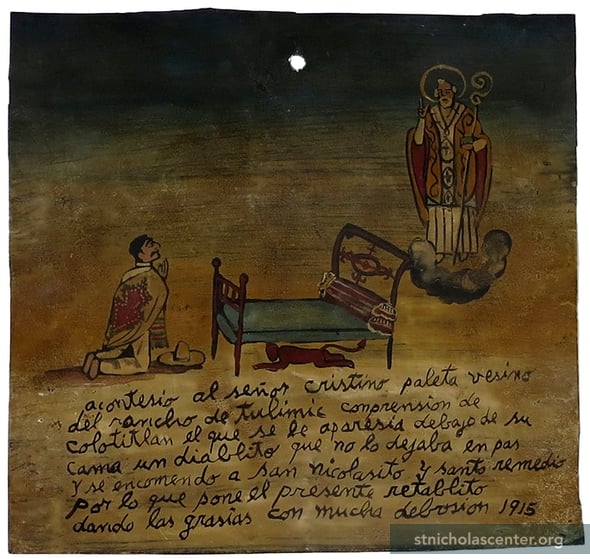 acontesio al señor cristino paleta vesino
del rancho de tulimic conprension de
colotitlan el que se le aparesia debajo de su
cama un diablito que no lo dejaba en pas
y se encomendo a san nicolasito y santo remedio
por lo que pone el presente retablito
dando las grasias con mucha debosion 1915
stnicholascenter.org